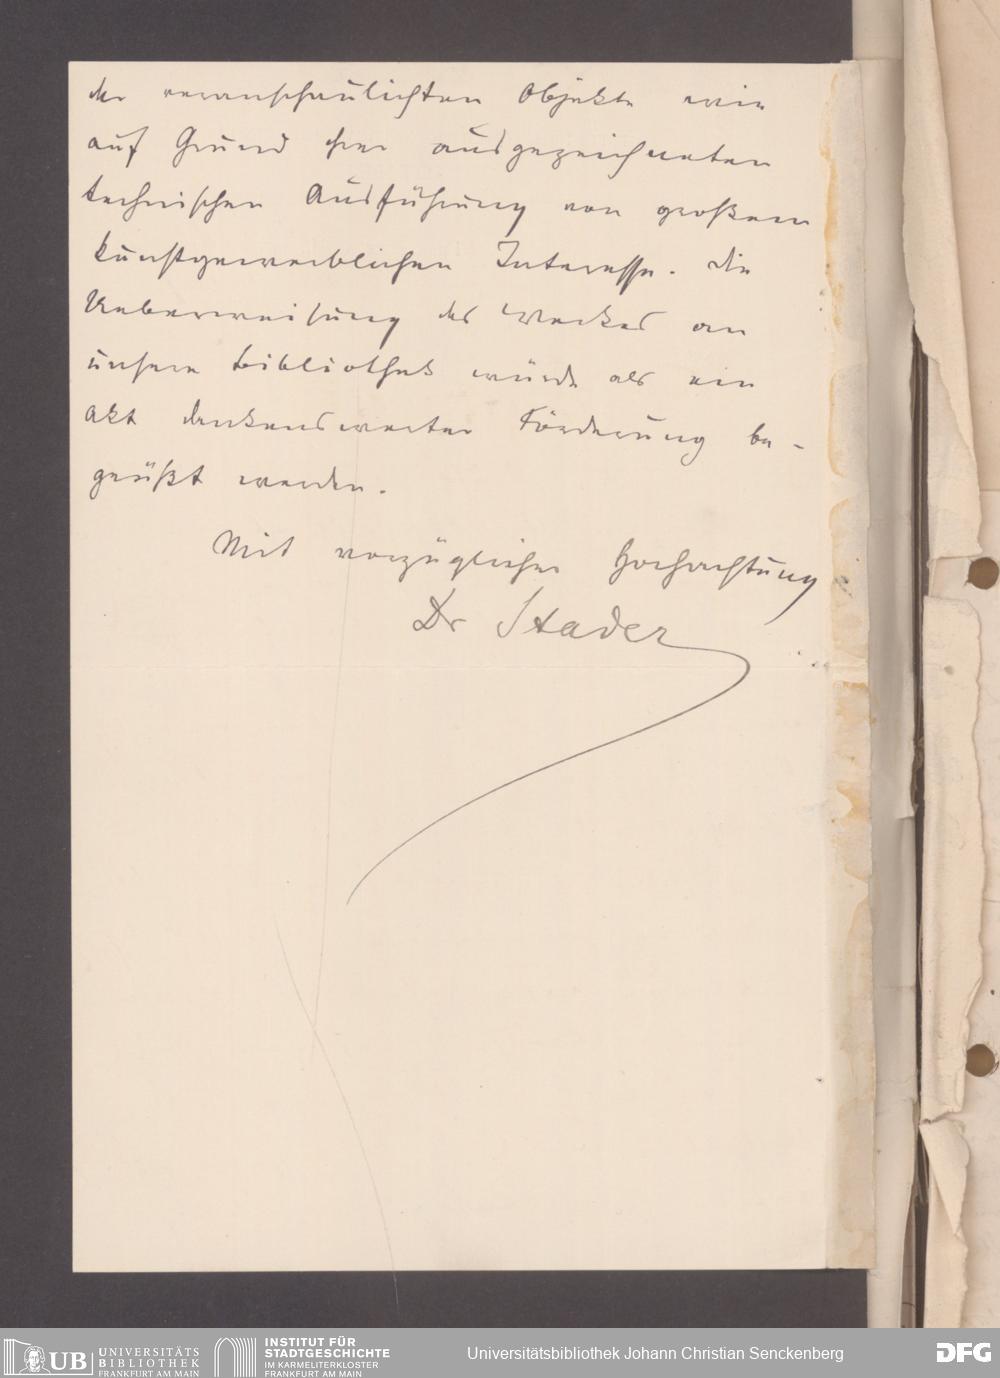 der veranschaulichten Objekte wie
auf Grund ihrer ausgezeichneten
technischen Ausführung von großem
kunstgewerblichen Interesse. Die
Ueberweisung des Werkes an
unsere Bibliothek würde als ein
Akt dankenswerter Förderung be-
grüßt werden.
Mit vorzüglicher Hochachtung
Dr Stader
UB UNIVERSITÄTS
BIBLIOTHEK
FRANKFURT AM MAIN
INSTITUT FÜR
STADTGESCHICHTE
IM KARMELITERKLOSTER
FRANKFURT AM MAIN
Universitätsbibliothek Johann Christian Senckenberg
DFG